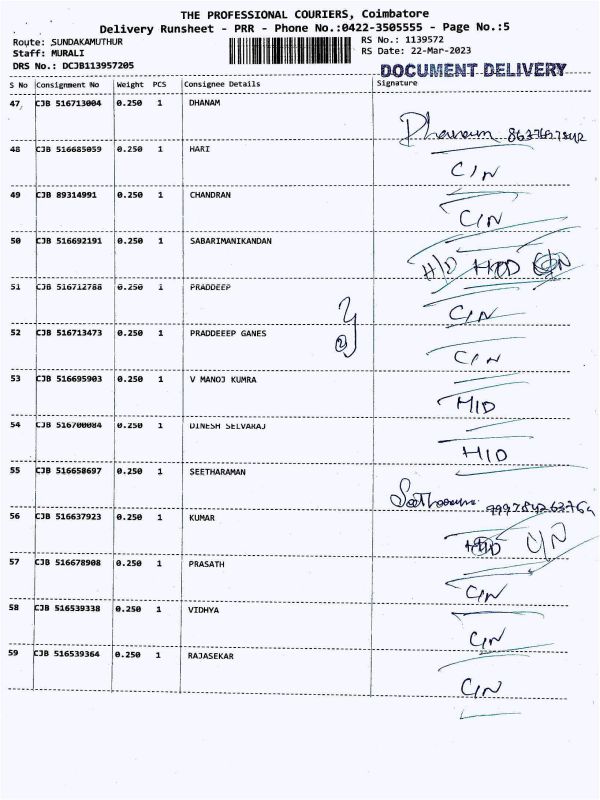 THE PROFESSIONAL COURIERS, Coimbatore
Delivery Runsheet - PRR - Phone No.:0422-3505555 - Page No.:5
Route: SUNDAKAMUTHUR
RS No.: 1139572
Staff: MURALI
RS Date: 22-Mar-2023
DRS No.: DCJB113957205
DOCUMENT DELIVERY
S No Consignment No Weight PCS Consignee Details Signature
47 CJB 516713004 0.250 1 DHANAM Dhanam
48 CJB 516685059 0.250 1 HARI C/N
49 CJB 89314991 0.250 1 CHANDRAN C/N
50 CJB 516692191 0.250 1 SABARIMANIKANDAN H/D
51 CJB 516712788 0.250 1 PRADDEEP C/N
52 CJB 516713473 0.250 1 PRADDEEEP GANES C/N
53 CJB 516695903 0.250 1 V MANOJ KUMRA H/D
54 CJB 516700084 0.250 1 DINESH SELVARAJ H/D
55 CJB 516658697 0.250 1 SEETHARAMAN
56 CJB 516637923 0.250 1 KUMAR C/N
57 CJB 516678908 0.250 1 PRASATH C/N
58 CJB 516539338 0.250 1 VIDHYA C/N
59 CJB 516539364 0.250 1 RAJASEKAR C/N